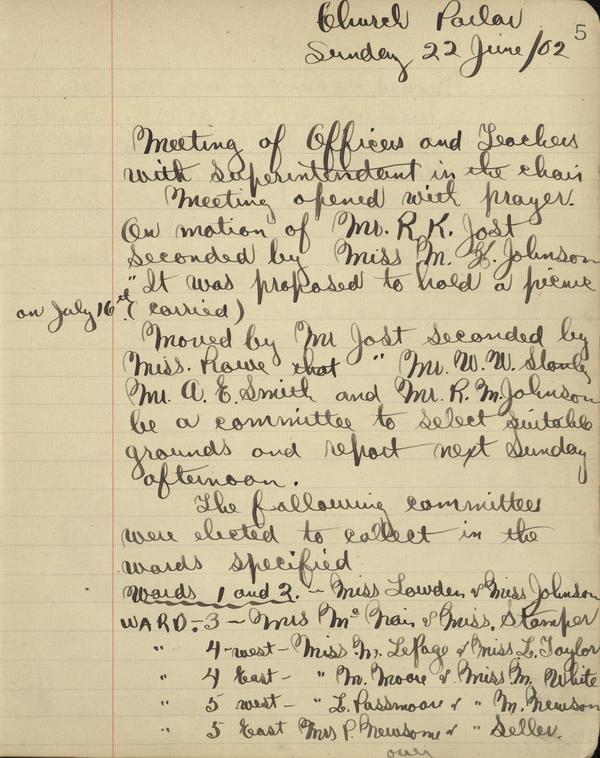 Church Parlor
5
Sunday 22 June/02
Meeting of Officers and Teachers
with Superintendant in the chair
Meeting opened with prayer.
On motion of Mr. R. K. Jost
seconded by Miss M. K. Johnson
"It was proposed to hold a picnic
on July 16th. (carried)
Moved by Mr Jost seconded by
Miss. Rowe that " Mr. W. W. 
Mr. A. E. Smith and Mr. R. M. Johnson
be a committee to select suitable
grounds and report next Sunday
afternoon.
The following committees
were elected to collect in the
wards specified
Wards 1 and 2. - Miss Lowden & Miss Johnson
WARD. 3 - Mrs Mc Nair & Miss. Stamper
" 4 - west - Miss M. LePage & Miss L. Taylor
" 4 East - " M. Moore & Miss M. White
" 5 west - " L. Passmore & " M. Newson
" 5 East Mrs P. Newsome & " Seller.
over